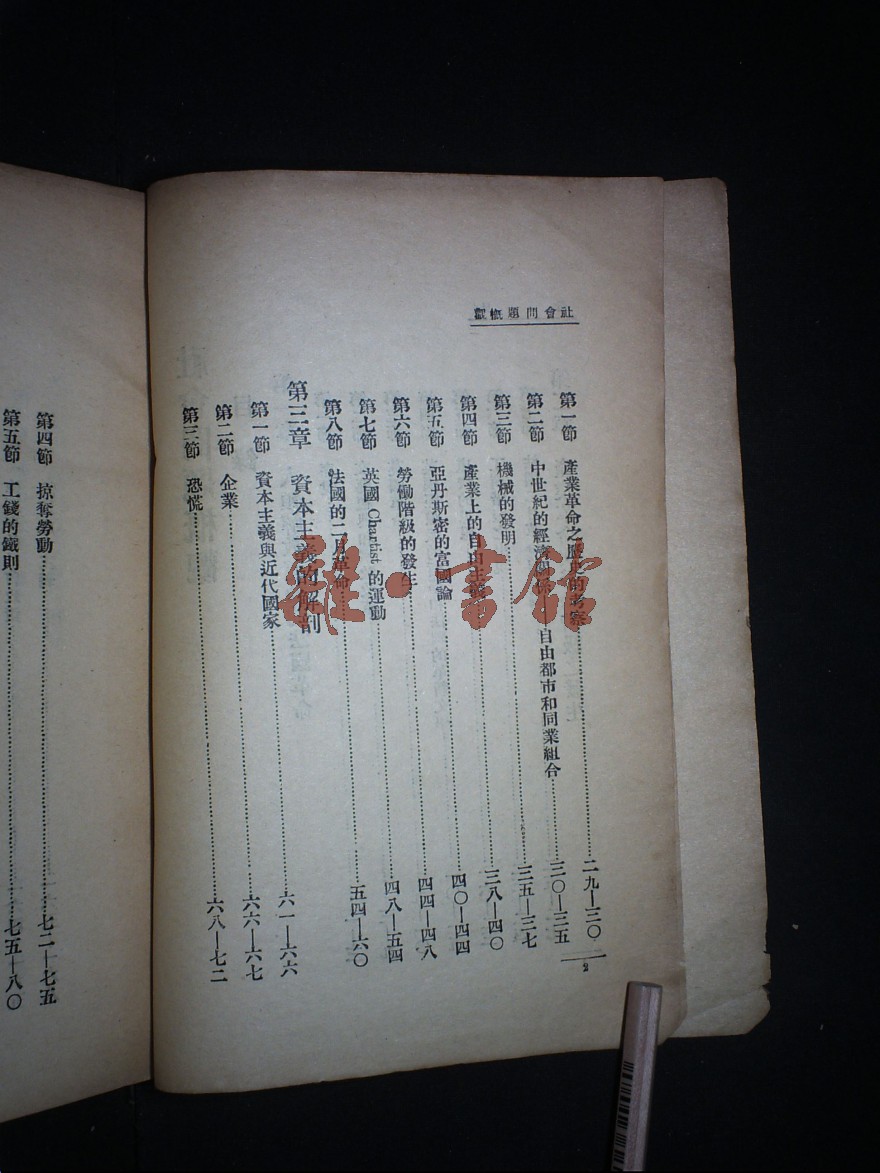 社會問題概觀
第一節 產業革命之歷史的考察……二九—三〇
第二節 中世紀的經濟關係—自由都市和同業組合……三〇—三五
第三節 機械的發明……三五—三七
第四節 產業上的自由主義……三八—四〇
第五節 亞丹斯密的富國論……四〇—四四
第六節 勞働階級的發生……四四—四八
第七節 英國 Chartist 的運動……四八—五四
第八節 法國的二月革命……五四—六〇
第三章 資本主義的解剖
第一節 資本主義與近代國家……六一—六六
第二節 企業……六六—六七
第三節 恐慌……六八—七二
2
第四節 掠奪勞動……七二—七五
第五節 工錢的鐵則……七五—八〇
雜·書館